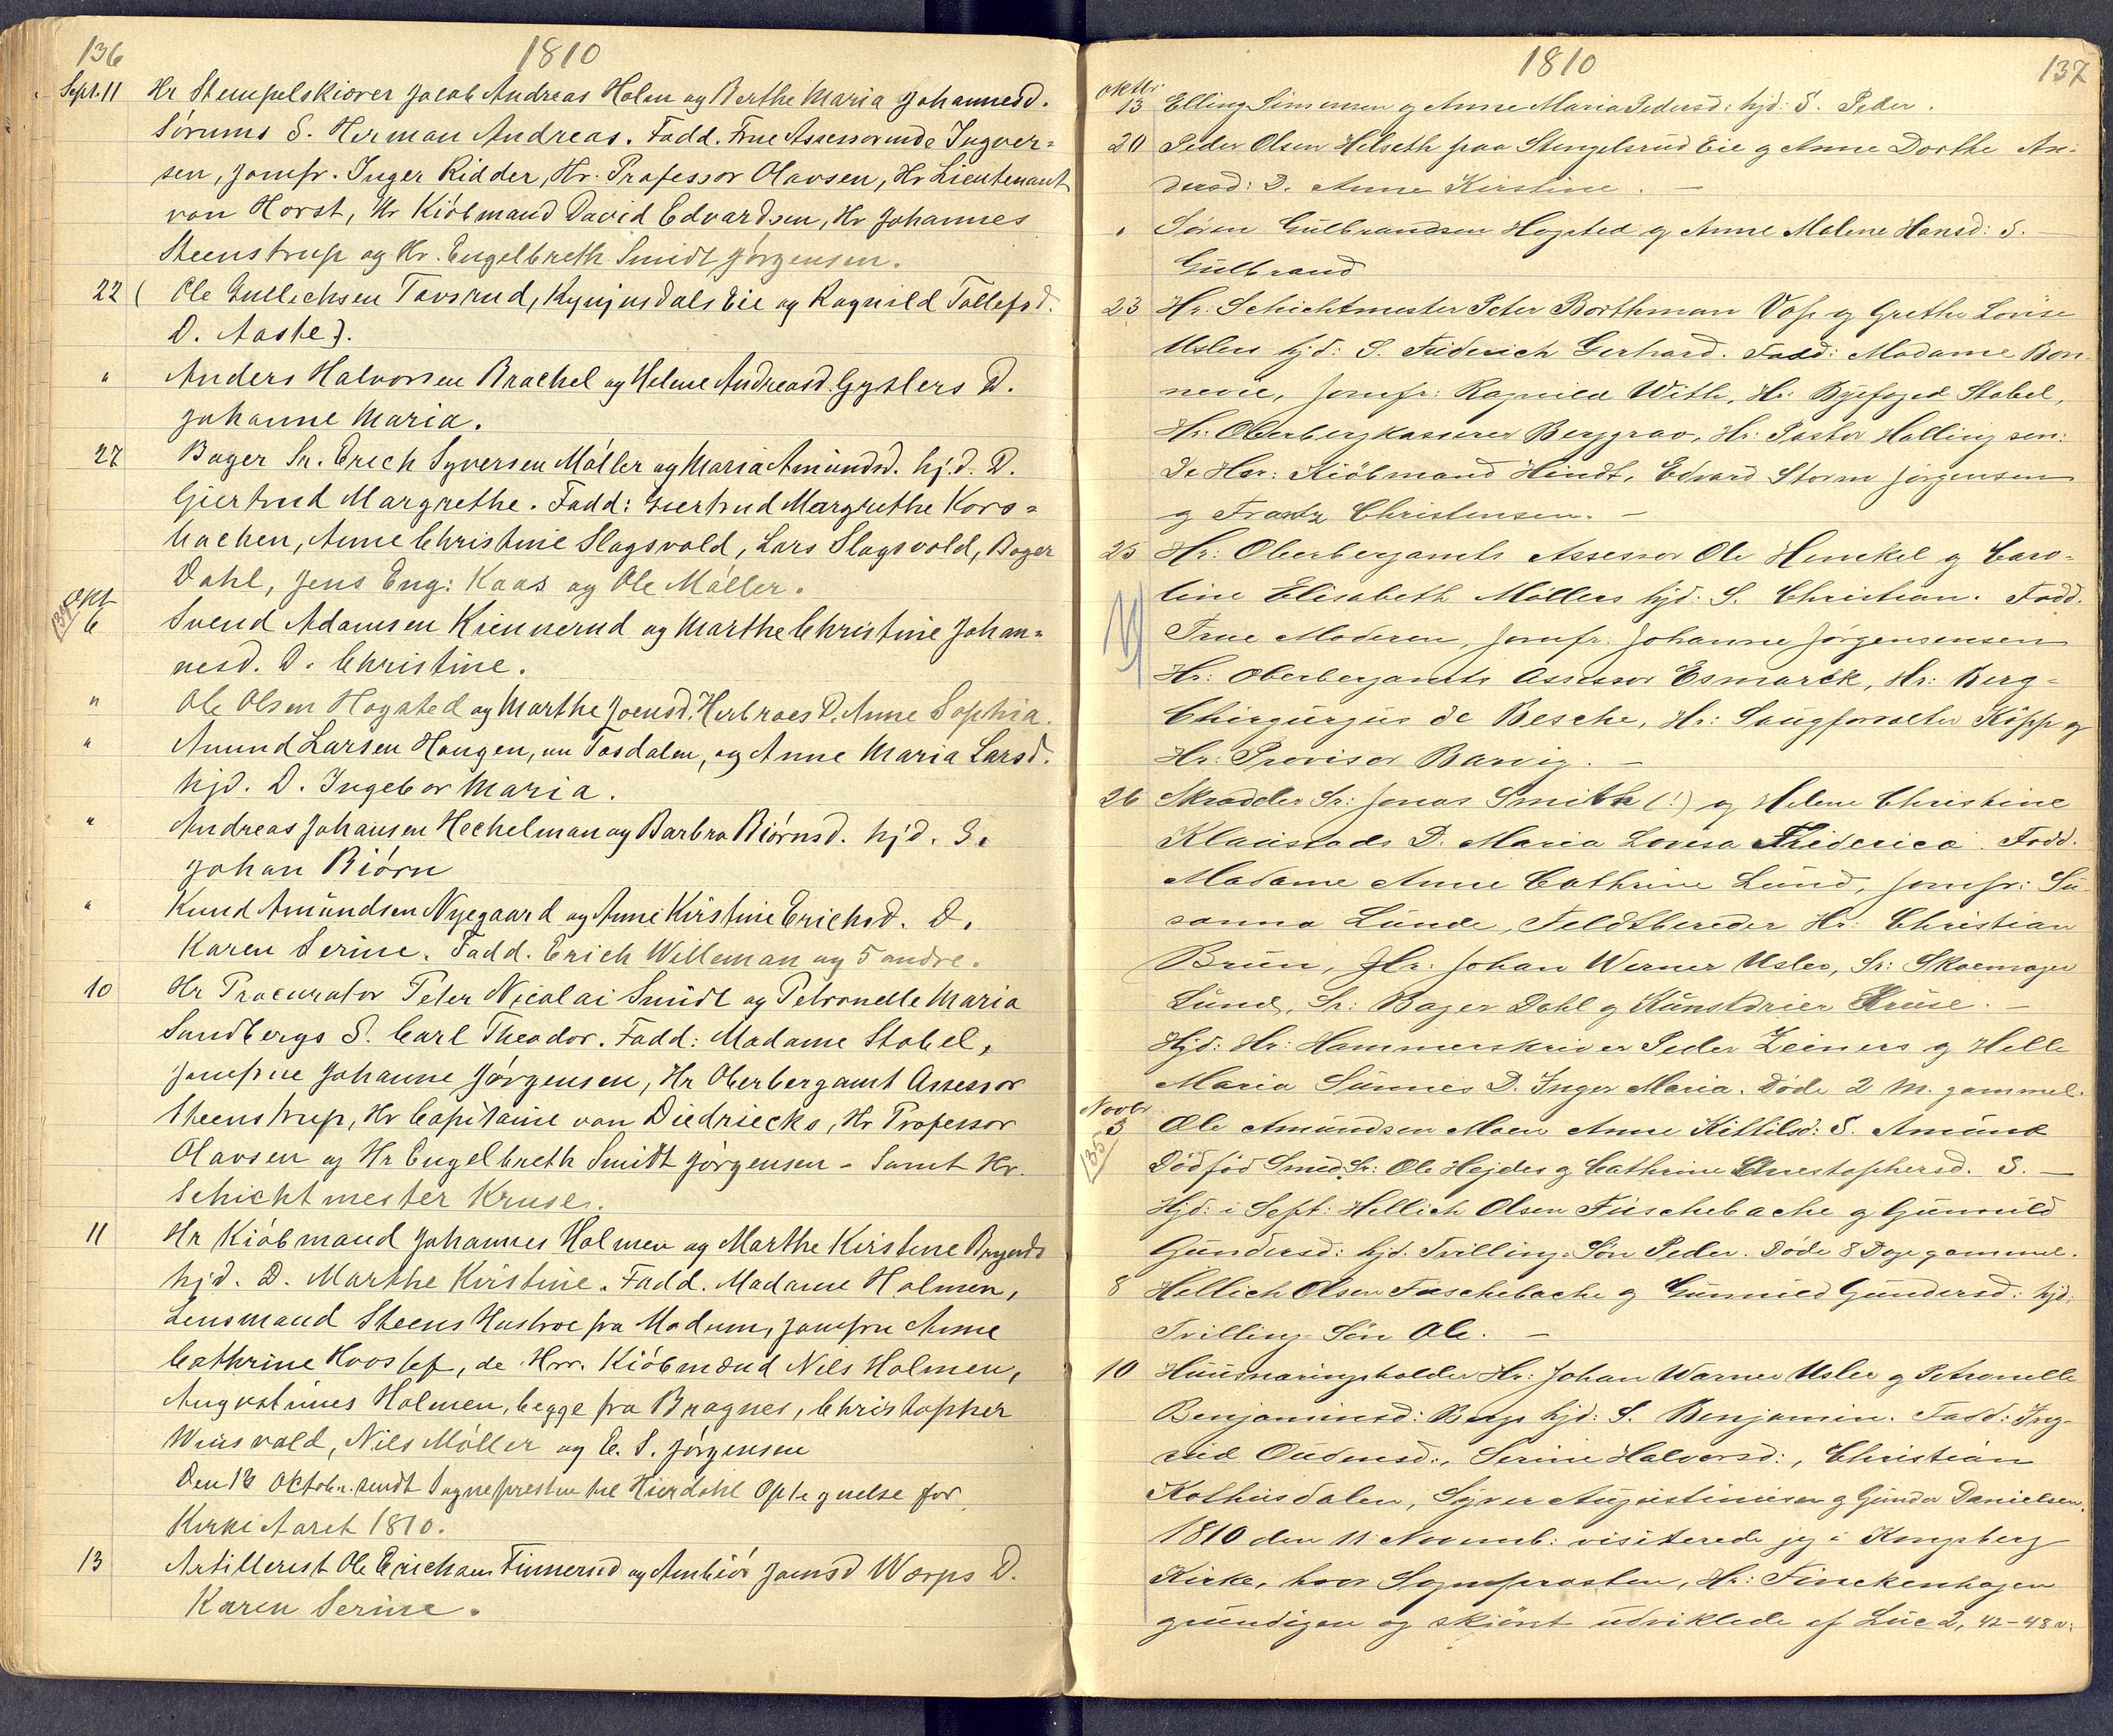 136
1810
Sept. 11 Hr Stempelskiærer Jacob Andreas Holm og Berthe Maria Johannesd.
Sørums S. Herman Andreas. Fadd. Frue Assessorinde Ingver=
sen, Jomfr. Inger Ridder, Hr. Professor Olavsen, Hr Lieutenant
von Horst, Hr Kiöbmand David Edvardsen, Hr Johannes
Steenstrup og Hr. Engelbreth Smidt Jørgensen.
22 ( Ole Gullichsen Tavsrud, Eie og Ragnild Tollefsd.
D. Aaste).
" Anders Halvorsen Brachel og Helene Andreasd. Gyslers D.
Johanne Maria.
27 Bager Sr. Erich Syversen Møller og Maria Amundsd. hj.d. D.
Giertrud Margrethe. Fadd: Giertrud Margrethe Kors=
bachen, Anne Christine Slagsvold, Lars Slagsvold, Bager
Dahl, Jens Eng: Kaas og Ole Møller.
Okt
134
6 Svend Adamsen Kiennerud og Marthe Christine Johan=
nesd. D. Christine.
" Ole Olsen Hogsted og Marthe Joensd. Herbraes D. Anne Sophia.
" Amund Larsen Haugen, nu Tosdalen, og Anne Maria Larsd.
hjd. D. Ingebor Maria.
" Andreas Johansen Hechelman og Barbra Biørnsd. hjd. S.
Johan Biørn
" Knud Amundsen Nyegaard og Anne Kirstine Erichsd. D.
Karen Serine. Fadd. Erich Welleman og 5 andre.
10 Hr Procurator Peter Nicolai Smidt og Petronelle Maria
Sandbergs S. Carl Theodor. Fadd: Madame Stabel,
Jomfrue Johanne Jørgensen, Hr Oberbergamt Assessor
Steenstrup, Hr Capitaine von Diedriecks, Hr Professor
Olavsen og Hr Engelbreth Smidt Jørgensen - Samt Hr.
Schichtmester Kruse.
11 Hr Kiöbmand Johannes Holmen og Marthe Kirstine
hjd. D. Marthe Kirstine. Fadd. Madame Holmen,
Lensmand Steens Hustroe fra Modum, Jomfru Anne
Cathrine, de Hrr. Kiöbmænd Nils Holmen,
Augustinus Holmen, begge fra Bragnes, Christopher
Wiisvald, Nils Møller og E. S. Jørgensen
Den 12 Octobr. sendt Sognepresten til Hierdahl Optegnelse for
Kirke Aaret 1810.
13 Artillerist Ole Erichsen Finnerud og Ambiør Joensd Worps D.
Karen Serine.
1810
137
Oktbr
13 Elling Simensen og Anne Maria Pedersd: hjd: S. Peder.
20 Peder Olsen Helseth fraa Stengelsrud Eie og Anne Dorthe An-
dersd: D. Anne Kirstine. —
" Søren Gulbrandsen Hogsted og Anne Malene Hansd: S. —
Gulbrand
23 Hr: Schichtmester Peter Borthman Vos og Grethe Lovise
Uslers hjd: S. Friderich Gerhard. Fadd: Madame Bon-
nevie, Jomfr: Ragnild With, Hr: Byefoged Stabel,
Hr: Oberbergkasserer Berggrav, Hr: Pastor Halling sen:
De Hrr: Kiöbmand Hindt, Edvard Storm Jørgensen
og Frantz Christensen. —
25 Hr: Oberbergamts Assessor Ole Henckel og Caro=
line Elisabeth Møllers hjd: S. Christian. Fadd.
Frue Moderen, Jomfr: Johanne Jørgensensen
Hr: Oberbergamts Assessor Esmarck, Hr: Berg=
Chirgurgus de Besche, Hr: Saugforvalter Köpp og
Hr: Provisor Barvig. —
26 Skrædder Sr: Jonas Smith (!) og Helene Christine
Klaustads D. Maria Lovisa Friderica. Fadd.
Madame Anne Cathrine Lund, Jomfr: Su-
sanna Lunde, Feldtbereder Hr: Christian
Brun, Hr: Johan Werner Usler, Sr: Skoemager
Lund, Sr: Bager Dahl og Kunstdrier Kruse. —
Hjd: Hr: Hammerskriver Peder Zeiners og Helle
Maria Sunnes D. Inger Maria. Døde 2 M. gammel.
Novbr.
135
3 Ole Amundsen Moen Anne Kittilsd: S. Amund
Dødfød Smed Sr: Ole Hejdes og Cathrine Christophersd. S. —
Hjd: i Sept: Hellich Olsen Fuschebache og Gunnild
Gundersd: hjd. Tvilling-Søn Peder. Døde 8 Dage gammel.
8 Hellich Olsen Fuschebache og Gunnild Gundersd: hjd:
Tvilling-Søn Ole. —
10 Huusnæringsholder Hr: Johan Warner Usler og Petronelle
Benjaminsd: Bergs hjd: S. Benjamin. Fadd: Ing-
rid Oudensd:, Serine Halvorsd:, Christian
Kolhusdalen, Syver Augustinusen og Gunder Danielsen.
1810 den 11 Novemb: visiterede jeg i Kongsberg
Kirke, hvor Sognepresten, Hr: Finckenhagen
grundigen og skiønt udviklede af Luc 2, 42-48 v: